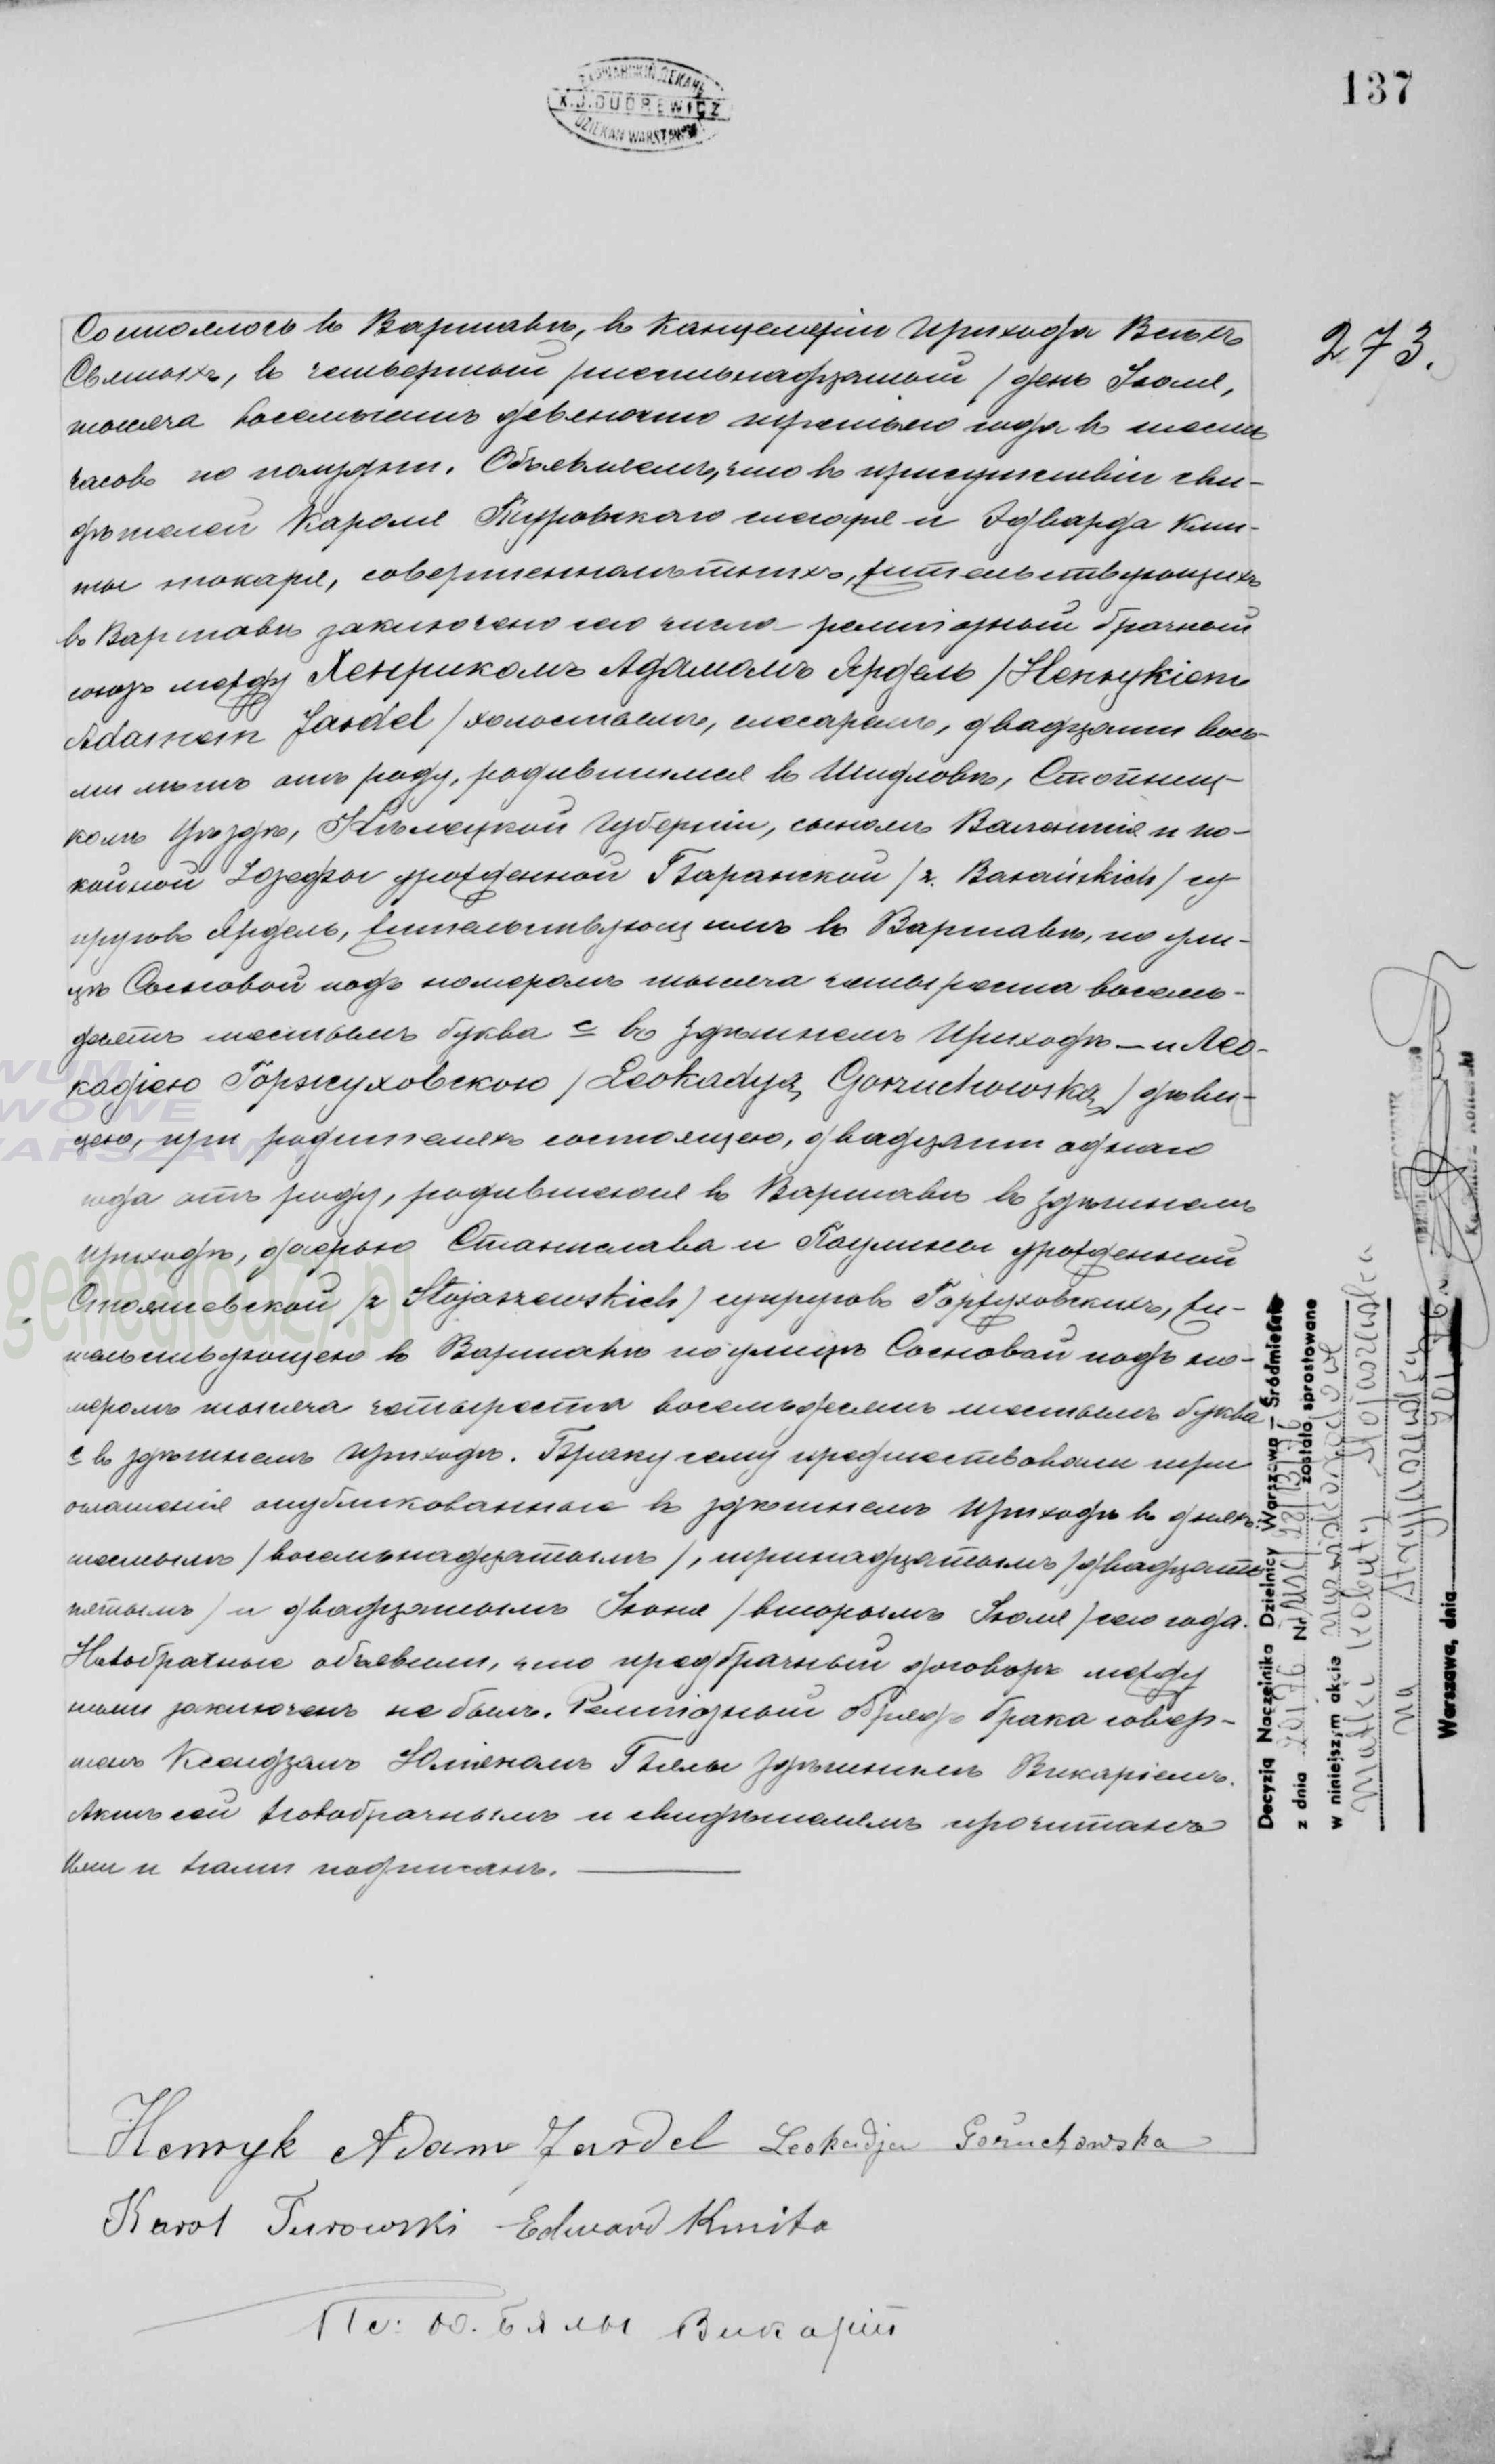 137
ВАРШАВСКІЙ ДЕКАНЪ
X. J. DUDREWICZ
DZIEKAN WARSZAWSKI
273.
Состоялось въ Варшавѣ, въ канцеляріи прихода Всѣхъ
Святыхъ, въ четвертый /шестьнадцатый/ день Іюля,
тысяча восемьсотъ девяносто третьяго года въ шесть
часовъ по полудни. Объявляемъ, что въ присутствіи сви-
дѣтелей Кароля Туровскаго слесаря и Эдварда Кми-
ты токаря, совершеннолѣтнихъ, жительствующихъ
въ Варшавѣ заключенъ сего числа религіозный брачный
союзъ между Хенрикомъ Адамомъ Ярдель /Henrykiem
Adamem Jardel/ холостымъ, слесаремъ, двадцати вось-
ми лѣтъ отъ роду, родившимся въ Шидловѣ, Стопниц-
комъ Уѣздѣ, Кѣлецкой Губерніи, сыномъ Валентія и по-
койной Юзефы урожденной Баранской /z Barańskich/ су-
пруговъ Ярдель, жительствующимъ въ Варшавѣ, по ули-
цѣ Сосновой подъ номеромъ тысяча четыреста восемь-
десятъ шестымъ буква с въ здѣшнемъ приходѣ — и Лео-
кадіею Горжуховскою /Leokadyą Gorzuchowską/ дѣви-
цею, при родителяхъ состоящею, двадцати одного
года отъ роду, родившеюся въ Варшавѣ въ здѣшнемъ
приходѣ, дочерью Станислава и Паулины урожденной
Стояшевской /z Stojaszewskich/ супруговъ Горжуховскихъ, жи-
тельствующею въ Варшавѣ по улицѣ Сосновой подъ но-
меромъ тысяча четыреста восемьдесятъ шестымъ буква
с въ здѣшнемъ приходѣ. Браку сему предшествовали три
оглашенія опубликованныя въ здѣшнемъ приходѣ въ дняхъ
шестымъ /восемьнадцатымъ/, тринадцатымъ /двадцать
пятымъ/ и двадцатымъ Іюня /вторымъ Іюля/ сего года.
Новобрачные объявили, что предбрачный договоръ между
ними заключенъ не былъ. Религіозный обрядъ брака совер-
шенъ Ксендзомъ Юліяномъ Бялы здѣшнимъ Викаріемъ.
Актъ сей новобрачнымъ и свидѣтелямъ прочитанъ
Ими и нами подписанъ.
Henryk Adam Jardel Leokadja Gorzuchowska
Karol Turowski Edward Kmita
Пс. об. Бялы Викарій
Decyzją Naczelnika Dzielnicy Warszawa – Śródmieście
z dnia Nr zostało sprostowane
w niniejszym akcie nazwisko
matki kobiety
na
Warszawa, dnia
genealodzy.pl
WARSZAWA